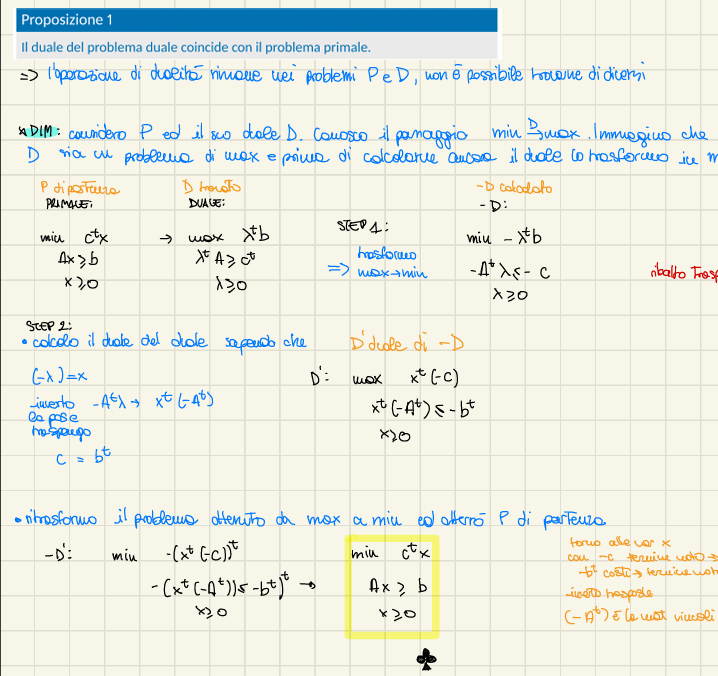 Proposizione 1
Il duale del problema duale coincide con il problema primale.
=> l'operazione di dualità rimane nei problemi P e D, non è possibile trovarne di diversi
* DIM: considero P ed il suo duale D. Conosco il passaggio min D→ max. Immagino che
D sia un problema di max e prima di calcolarne ancora il duale lo trasformo in m
P di partenza
PRIMALE:
min cᵗx
Ax ≥ b
x ≥ 0
→
D trovato
DUALE:
max λᵗb
λᵗA ≥ cᵗ
λ ≥ 0
STEP 1:
=> trasformo
max→min
-D calcolato
-D:
min -λᵗb
-Aᵗλ ≤ -c
λ ≥ 0
ribalto trasp
STEP 2:
• calcolo il duale del duale sapendo che
(-λ) = x
inverto -Aᵗλ → xᵗ(-Aᵗ)
la pos e
traspongo
c = bᵗ
D' duale di -D
D': max xᵗ(-c)
xᵗ(-Aᵗ) ≤ -bᵗ
x ≥ 0
• ritrasformo il problema ottenuto da max a min ed otterrò P di partenza
-D': min -(xᵗ(-c))ᵗ
-(xᵗ(-Aᵗ)) ≤ -bᵗ)ᵗ →
x ≥ 0
min cᵗx
Ax ≥ b
x ≥ 0
torno alle var x
con -c termine noto →
-bᵗ costi → termine not
inverto trasposte
(-Aᵗ) è la mat vincoli
♣